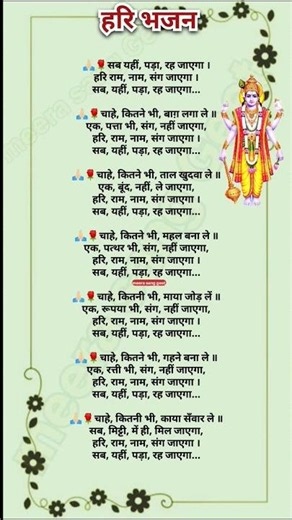 हरि भजन
🙏🏻🌹सब यहीं, पड़ा, रह जाएगा ।
हरि राम, नाम, संग जाएगा ।
सब, यहीं, पड़ा, रह जाएगा...
🙏🏻🌹चाहे, कितने भी, बाग़ लगा ले ॥
एक, पत्ता भी, संग, नहीं जाएगा,
हरि, राम, नाम, संग जाएगा ।
सब, यहीं, पड़ा, रह जाएगा...
🙏🏻🌹चाहे, कितने भी, ताल खुदवा ले ॥
एक, बूंद, नहीं, ले जाएगा,
हरि, राम, नाम, संग जाएगा ।
सब, यहीं, पड़ा, रह जाएगा...
🙏🏻🌹चाहे, कितने भी, महल बना ले ॥
एक, पत्थर भी, संग नहीं जाएगा,
हरि, राम, नाम, संग जाएगा ।
सब, यहीं, पड़ा, रह जाएगा...
meera sang geet
🙏🏻🌹चाहे, कितनी भी, माया जोड़ लें ॥
एक, रूपया भी, संग, नहीं जाएगा,
हरि, राम, नाम, संग जाएगा ।
सब, यहीं, पड़ा, रह जाएगा...
🙏🏻🌹चाहे, कितने भी, गहने बना ले ॥
एक, रत्ती भी, संग, नहीं जाएगा,
हरि, राम, नाम, संग जाएगा ।
सब, यहीं, पड़ा, रह जाएगा...
🙏🏻🌹चाहे, कितनी भी, काया सँवार ले ॥
सब, मिट्टी, में ही, मिल जाएगा,
हरि, राम, नाम, संग जाएगा ।
सब, यहीं, पड़ा, रह जाएगा...